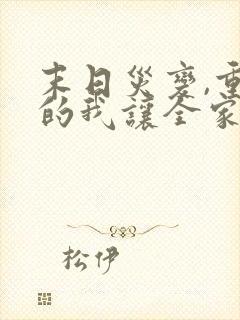 末日災變,重
的我讓全家
松伊